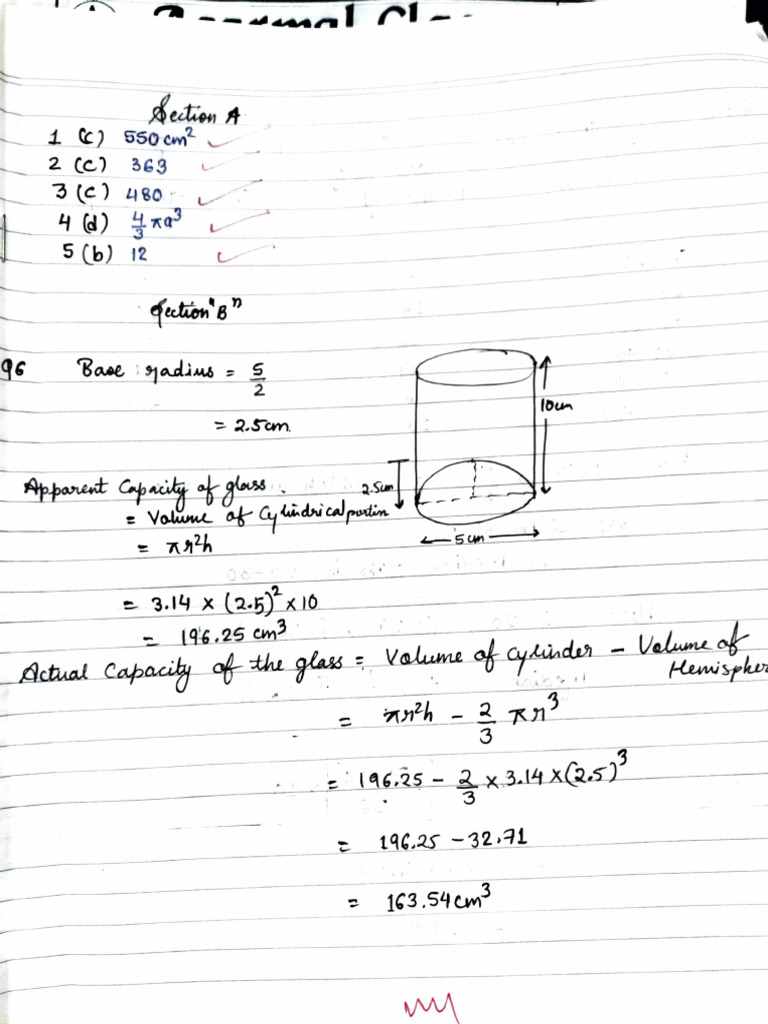 Section A
1 (c) 550 cm²
2 (c) 369
3 (c) 480
4 (d) 4/3 πa³
5 (b) 12
Section "B"
Q6 Base radius = 5/2
= 2.5cm
10cm
Apparent Capacity of glass.
2.5cm
= Volume of Cylindrical portin
5cm
= πr²h
= 3.14 × (2.5)² × 10
= 196.25 cm³
Actual Capacity of the glass = Volume of cylinder – Volume of
Hemispher
= πr²h – 2/3 πr³
= 196.25 – 2/3 × 3.14 × (2.5)³
= 196.25 – 32.71
= 163.54 cm³